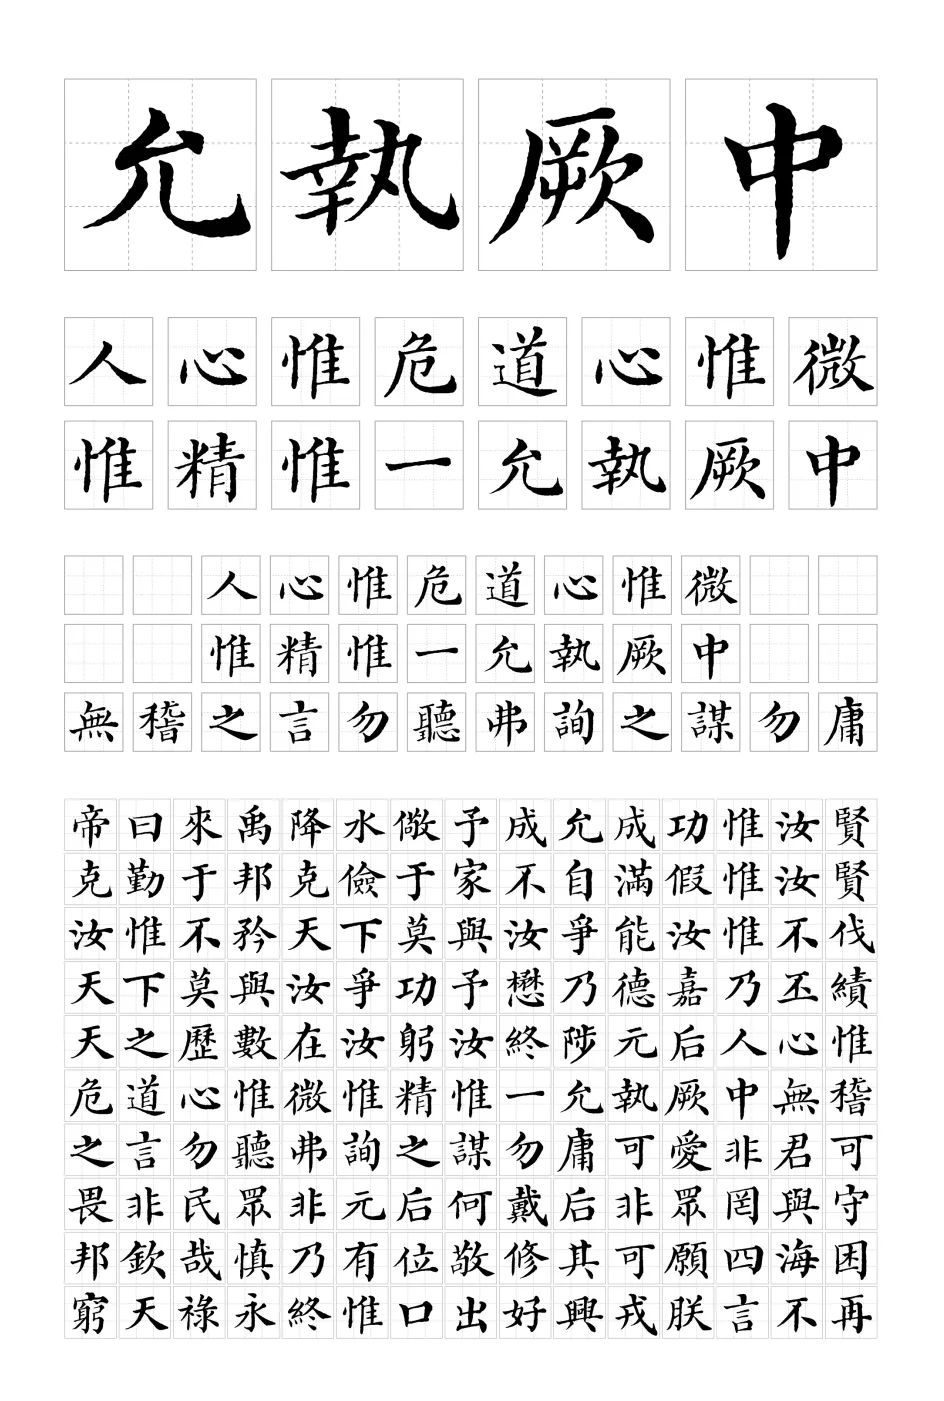 允執厥中
人心惟危道心惟微
惟精惟一允執厥中
人心惟危道心惟微
惟精惟一允執厥中
無稽之言勿聽弗詢之謀勿庸
帝曰來禹降水儆予成允成功惟汝賢
克勤于邦克儉于家不自滿假惟汝賢
汝惟不矜天下莫與汝爭能汝惟不伐
天下莫與汝爭功予懋乃德嘉乃丕績
天之歷數在汝躬汝終陟元后人心惟
危道心惟微惟精惟一允執厥中無稽
之言勿聽弗詢之謀勿庸可愛非君可
畏非民眾非元后何戴后非眾罔與守
邦欽哉慎乃有位敬修其可願四海困
窮天祿永終惟口出好興戎朕言不再